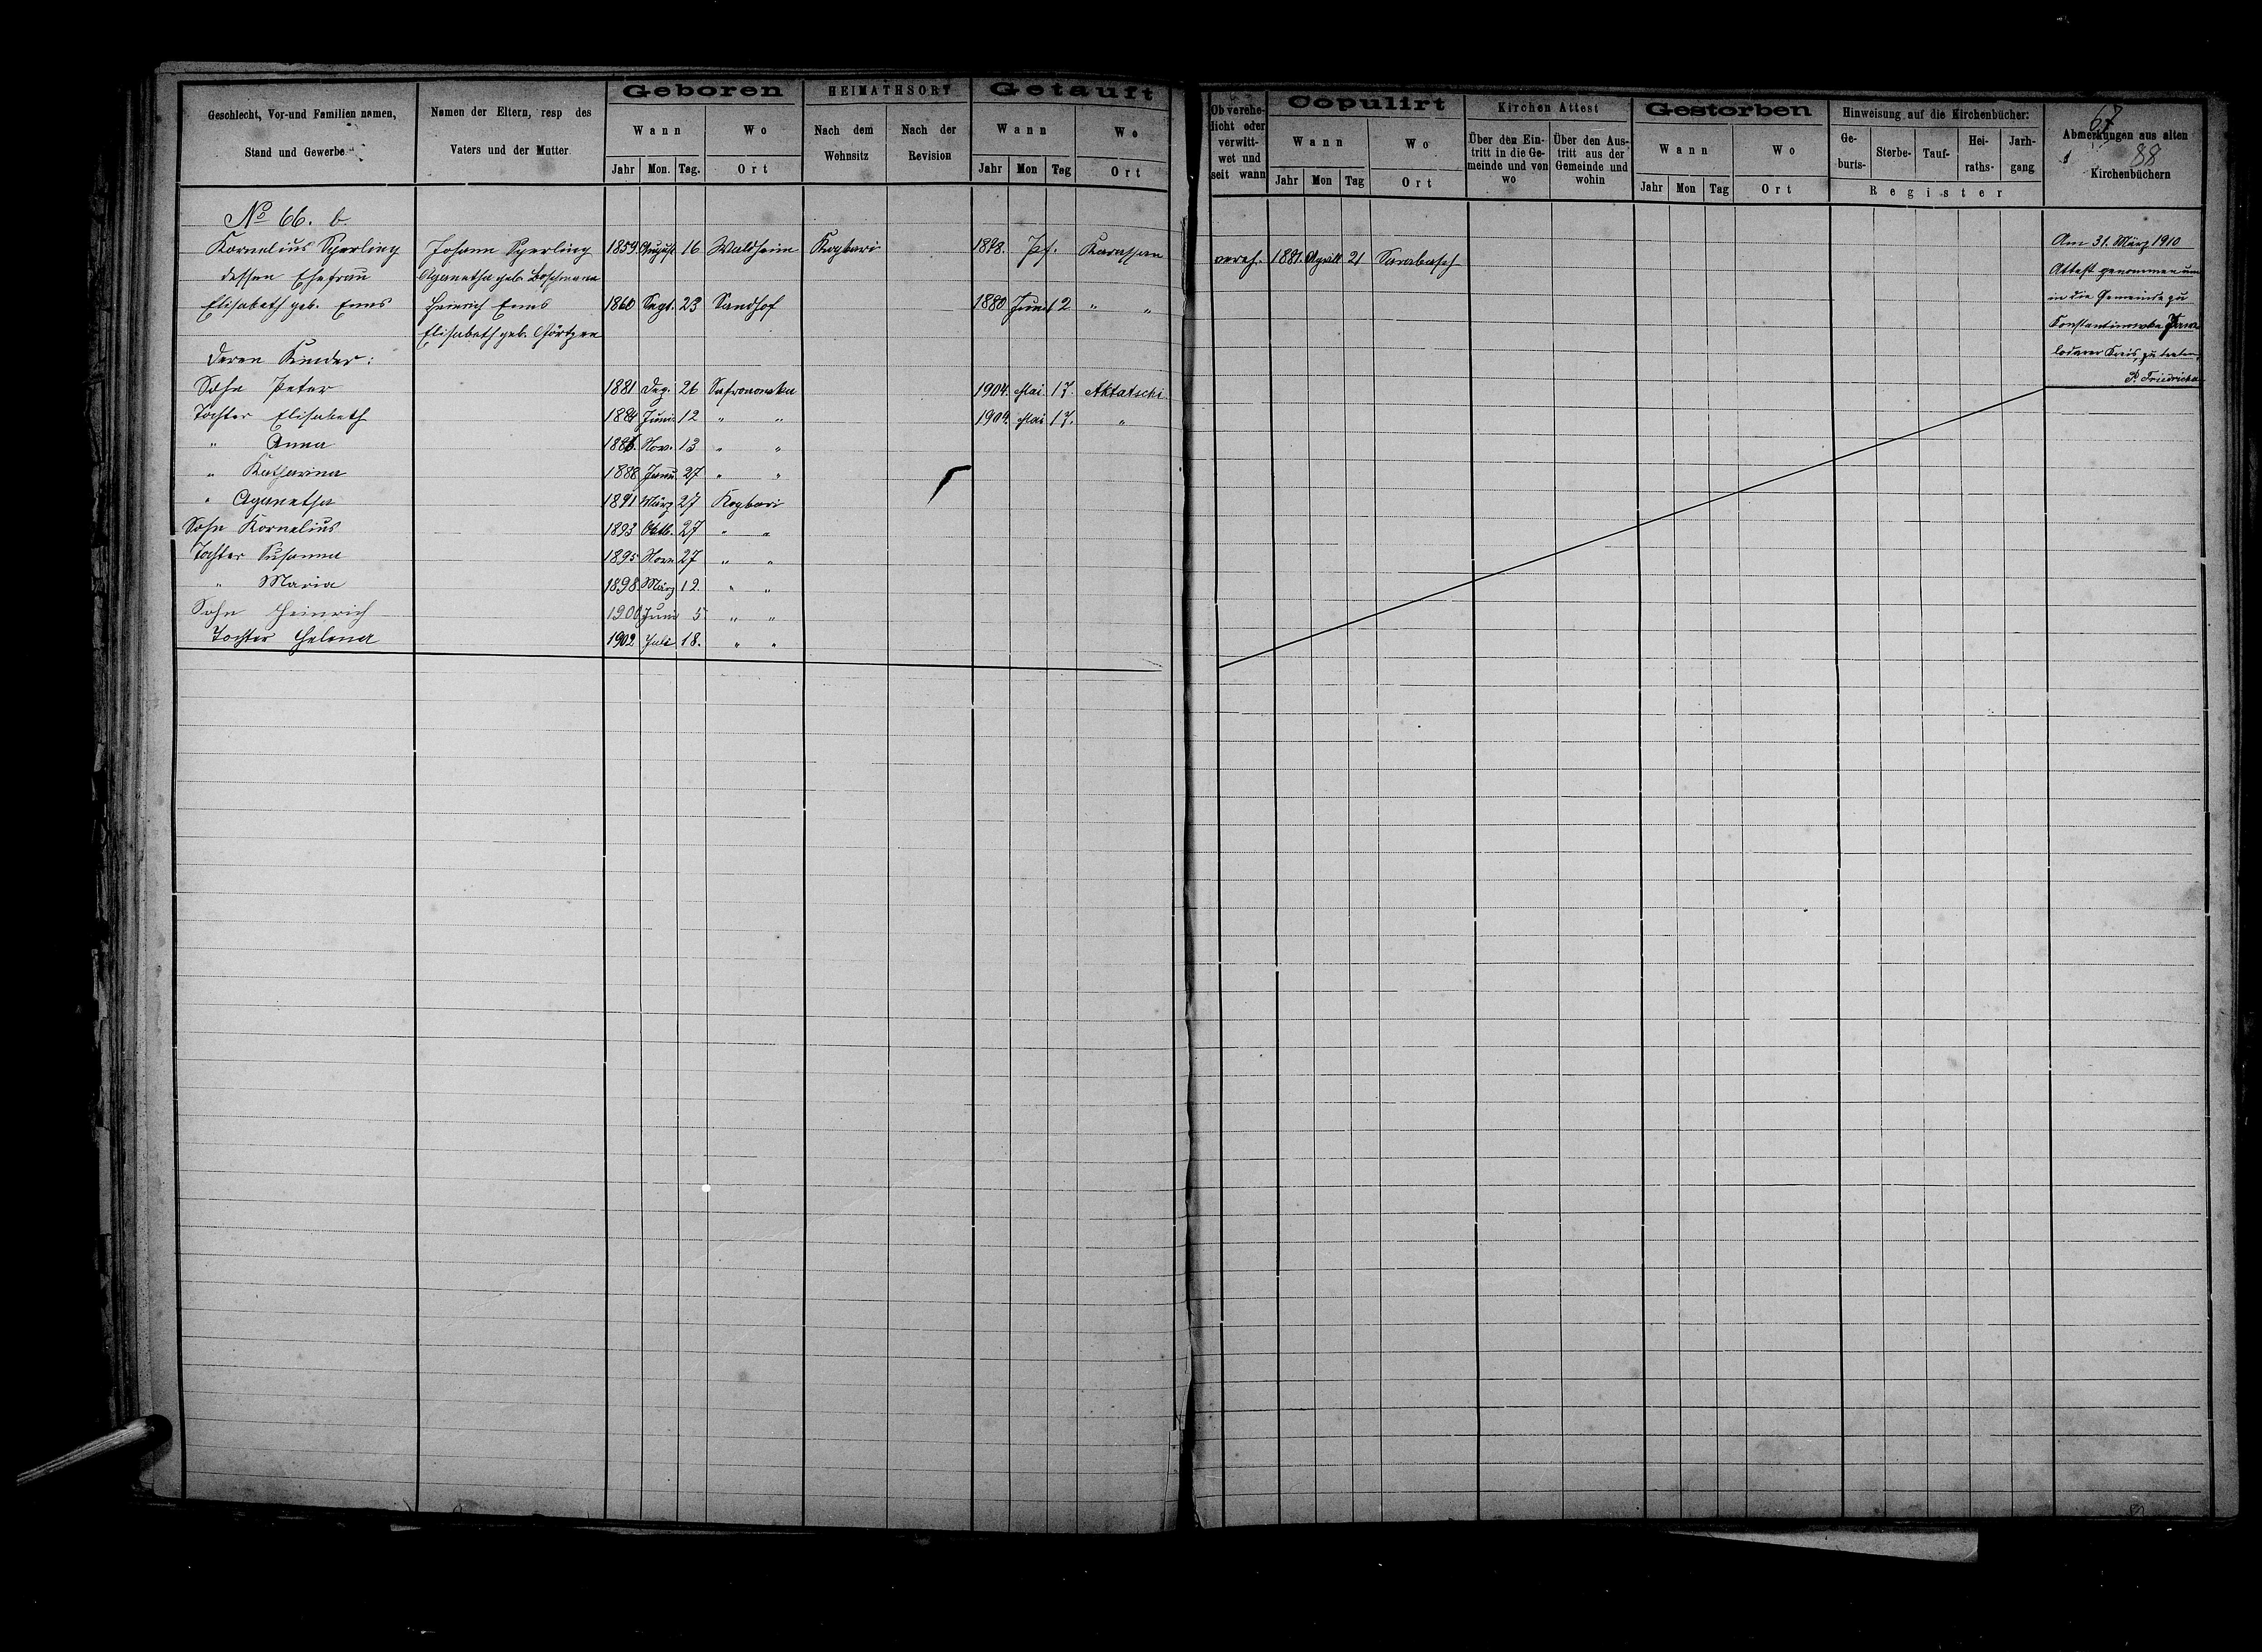 Geschlecht, Vor-und Familien namen, Stand und Gewerbe
Namen der Eltern, resp des Vaters und der Mutter
Geboren
Wann
Wo
Jahr Mon. Tag. Ort
HEIMATHSORT
Nach dem Wohnsitz
Nach der Revision
Getauft
Wann
Wo
Jahr Mon Tag Ort
Ob verehelicht oder verwittwet und seit wann
Copulirt
Wann
Wo
Jahr Mon Tag Ort
Kirchen Attest
Über den Eintritt in die Gemeinde und von wo
Über den Austritt aus der Gemeinde und wohin
Gestorben
Wann
Wo
Jahr Mon Tag Ort
Hinweisung auf die Kirchenbücher:
Geburts- Sterbe- Tauf- Heiraths- Jarhgang
Register
67
Abmerkungen aus alten Kirchenbüchern
88
No 66. b
Kornelius Sperling Johann Sperling 1859 August 16 Waldheim Kogbari Karassan vereh. 1881. Aprill 21 Sarabasch
dessen Ehefrau Aganetha geb. Boschmann
Elisabeth geb. Enns Heinrich Enns 1860 Sept. 23 Sandhof 1880 Juni 2 " "
Elisabeth geb. Görtzen
deren Kinder:
Sohn Peter 1881 Dez. 26 1904. Mai 17. Aktatschi
Tochter Elisabeth 1884 Juni 12 " " 1904. Mai 17. "
" Anna Nov. 13 " "
" Katharina 1888 Janu. 27 " "
" Aganetha 1891 März 27 Kogbari
Sohn Kornelius 1893 Oktb. 27 " "
Tochter Susanna 1895 Nove 27 " "
" Maria 1898. März 12. " "
Sohn Heinrich 1900 Juni 5 " "
Tochter Helena 1902 Juli 18. " "
Am 31. März 1910
Attest genommen um
in die Gemeinde zu
Konstantinowka Paw-
lodarer Kreis, zu treten,
P. Friedrichsen